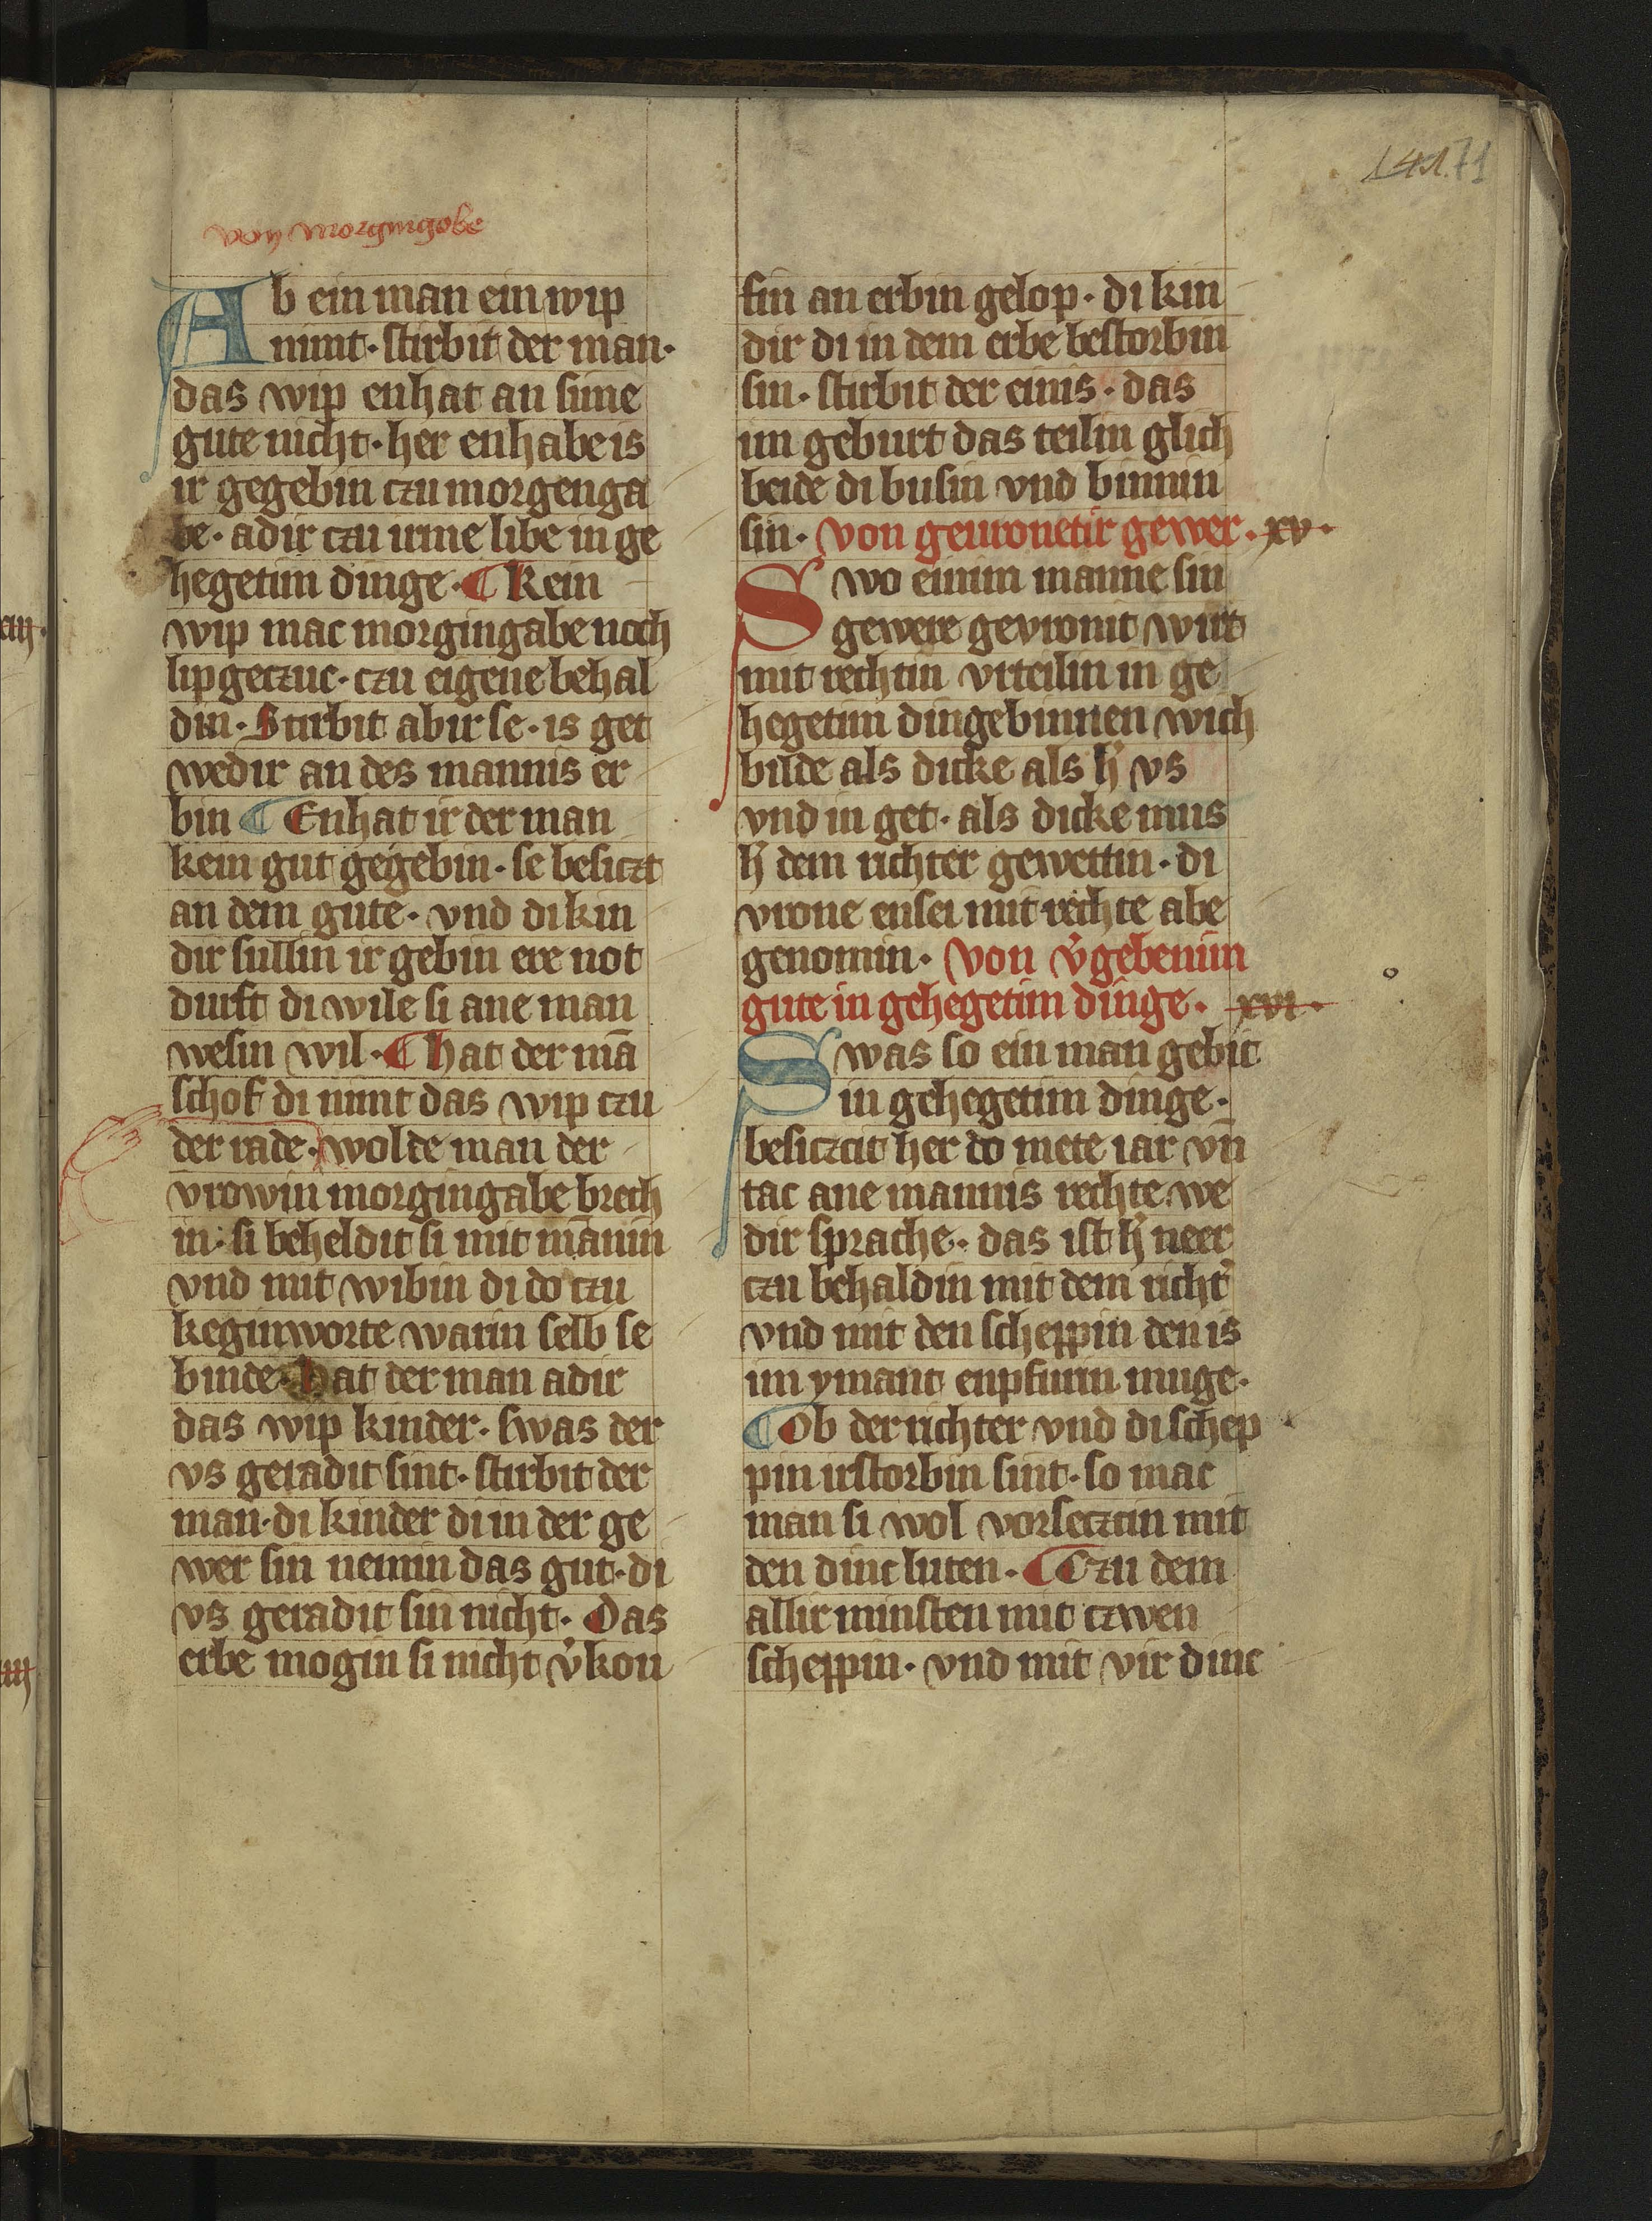 141.71
von morgingobe
Ab ein man ein wip
nimt· stirbit der man·
das wip enhat an sime
gute nicht· her enhabe is
ir gegebin czu morgenga
be· adir czu irme libe in ge
hegetim dinge· ¶ Kein
wip mac morgingabe noch
lipgeczuc· czu eigene behal
din· Stirbit abir se· is get
wedir an des mannis er
bin ¶ Enhat ir der man
kein gut gegebin· se besiczt
an dem gute· vnd di kin
dir sullin ir gebin ere not
durft di wile si ane man
wesin wil· ¶ hat der mā
schof di nimt das wip czu
der rade· wolde man der
vrowin morgingabe brech
in· si beheldit si mit mānin
vnd mit wibin di do czu
keginworte warin selb se
binde· hat der man adir
das wip kinder· swas der
vs geradit sint· stirbit der
man· di kinder di in der ge
wer sin nemin das gut· di
vs geradit sin nicht· Das
erbe mogin si nicht v̉kou
fin an erbin gelop· di kin
dir di in dem erbe bestorbin
sin· stirbit der einis· das
im geburt das teilin glich
beide di busin vnd binnin
sin· von gevronetir gewer· xv·
Swo einim manne sin
gewere gevronit wirt
mit rechtin vrteilin in ge
hegetim dinge binnen wich
bilde als dicke als h̉ vs
vnd in get· als dicke mus
h̉ dem richter gewettin· di
vrone ensei mit rechte abe
genomin· von v̉gebenim
gute in gehegetim dinge· xvi·
Swas so ein man gebit
in gehegetim dinge·
besiczcit her do mete iar vn̄
tac ane mannis rechte we
dir sprache· das ist h̉ neer
czu behaldin mit dem richt̉
vnd mit den scheppin den is
im ymant enpfurin muge·
¶ Ob der richter vnd di schep
pin irstorbin sint· so mac
man si wol vorsecztin mit
den dinc luten· ¶ Czu dem
allir minsten mit czwen
scheppin· vnd mit vir dinc